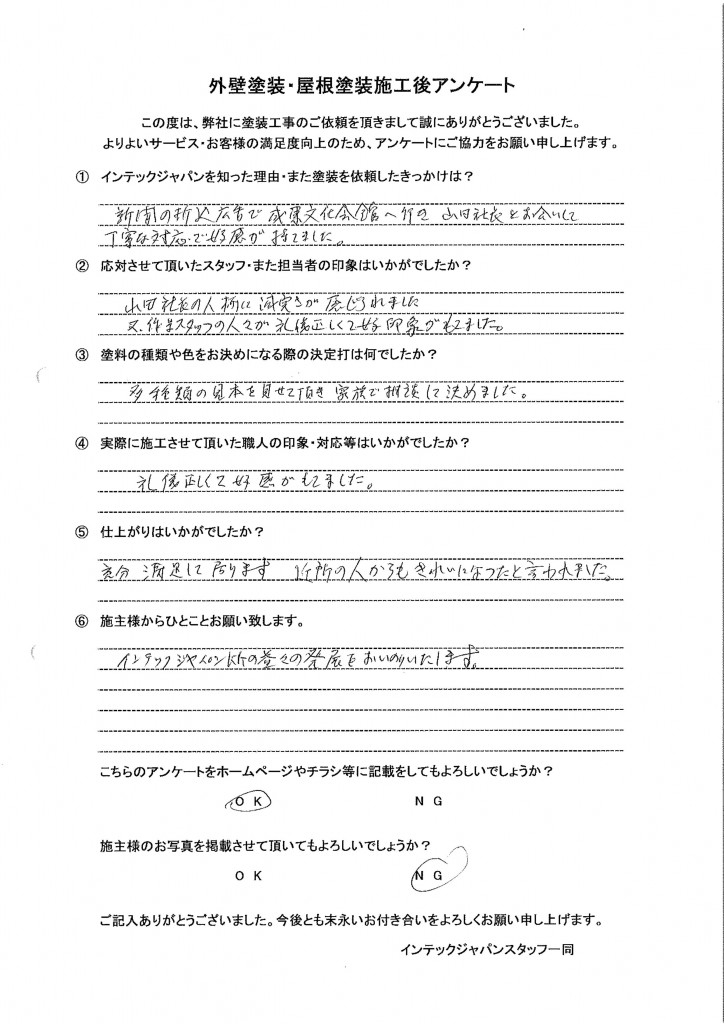 外壁塗装・屋根塗装施工後アンケート
この度は、弊社に塗装工事のご依頼を頂きまして誠にありがとうございました。
よりよいサービス・お客様の満足度向上のため、アンケートにご協力をお願い申し上げます。
① インテックジャパンを知った理由・また塗装を依頼したきっかけは？
新聞の折込広告で 成東文化会館へ行き 山田社長とお会いして
丁寧な対応で好感が持てました。
② 応対させて頂いたスタッフ・また担当者の印象はいかがでしたか？
山田社長の人柄に誠実さが感じられました
又、作業スタッフの人々が礼儀正しくて好印象がもてました。
③ 塗料の種類や色をお決めになる際の決定打は何でしたか？
多種類の見本を見せて頂き 家族で相談して決めました。
④ 実際に施工させて頂いた職人の印象・対応等はいかがでしたか？
礼儀正しくて好感がもてました。
⑤ 仕上がりはいかがでしたか？
充分満足して居ります 近所の人からもきれいになったと言われました。
⑥ 施主様からひとことお願い致します。
インテックジャパンKKの益々の発展をおいのりいたします。
こちらのアンケートをホームページやチラシ等に記載をしてもよろしいでしょうか？
ＯＫ ＮＧ
施主様のお写真を掲載させて頂いてもよろしいでしょうか？
ＯＫ ＮＧ
ご記入ありがとうございました。今後とも末永いお付き合いをよろしくお願い申し上げます。
インテックジャパンスタッフ一同